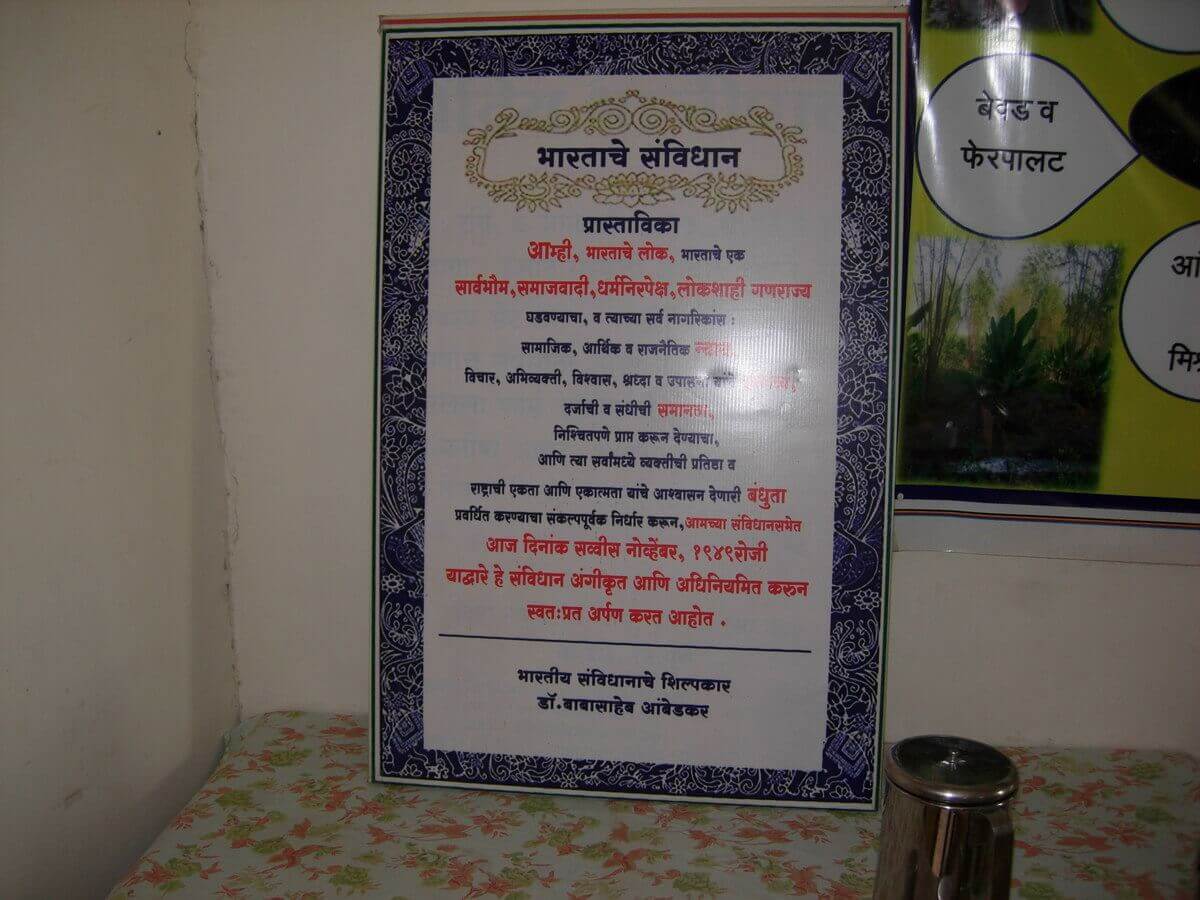 भारताचे संविधान
प्रास्ताविका
आम्ही, भारताचे लोक, भारताचे एक
सार्वभौम,समाजवादी,धर्मनिरपेक्ष,लोकशाही गणराज्य
घडवण्याचा, व त्याच्या सर्व नागरिकांस :
सामाजिक, आर्थिक व राजनैतिक न्याय,
विचार, अभिव्यक्ती, विश्वास, श्रध्दा व उपासना यांचे
दर्जाची व संधीची समानता,
निश्चितपणे प्राप्त करून देण्याचा,
आणि त्या सर्वांमध्ये व्यक्तीची प्रतिष्ठा व
राष्ट्राची एकता आणि एकात्मता यांचे आश्वासन देणारी बंधुता
प्रवर्धित करण्याचा संकल्पपूर्वक निर्धार करून,आमच्या संविधानसभेत
आज दिनांक सव्वीस नोव्हेंबर, १९४९रोजी
याद्वारे हे संविधान अंगीकृत आणि अधिनियमित करुन
स्वतःप्रत अर्पण करत आहोत .
भारतीय संविधानाचे शिल्पकार
डॉ.बाबासाहेब आंबेडकर
बेवड व
फेरपालट